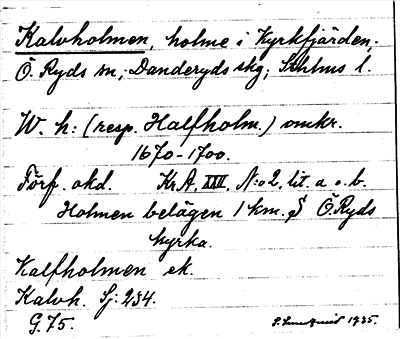 Kalvholmen, holme i Kyrkfjärden,
Ö. Ryds sn, Danderyds skg, Sthlms l.
W. h: (resp. Halfholm.) omkr.
1670-1700.
Förf. okd. Kr A XXII, N:o 2, lit. a o. b.
Holmen belägen 1 km. S Ö. Ryds
kyrka.
Kalfholmen ek.
Kalvh. Sj: 234.
G. 75.
1935.